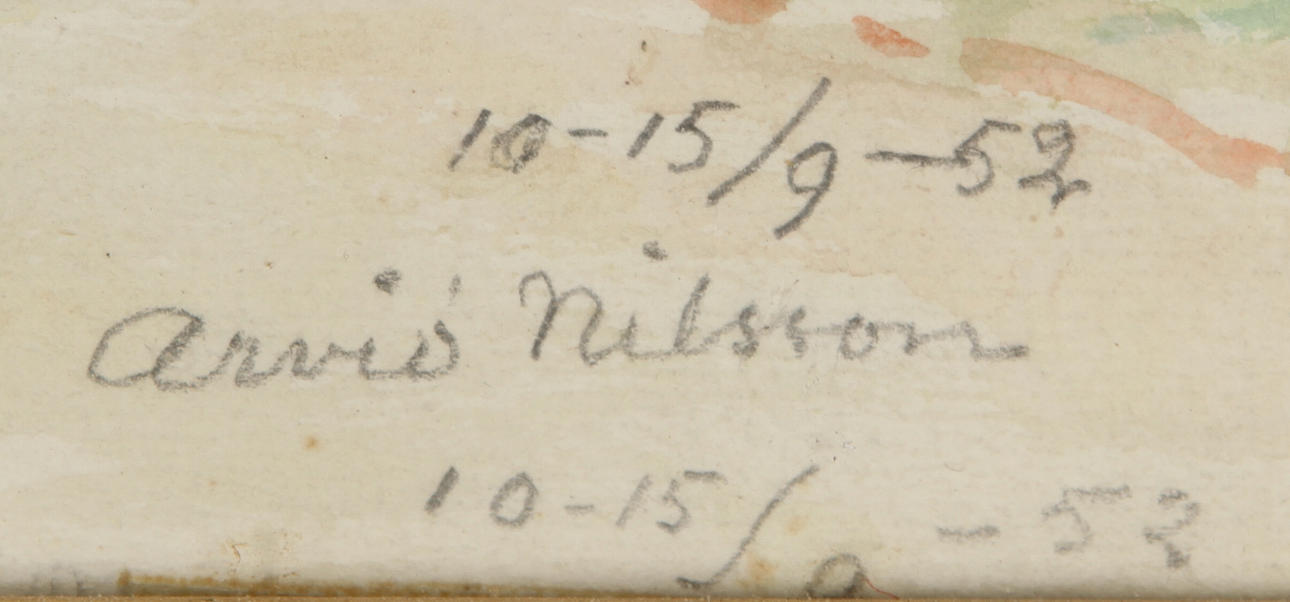 10-15/9-52
Arvid Nilsson
10-15/9-52